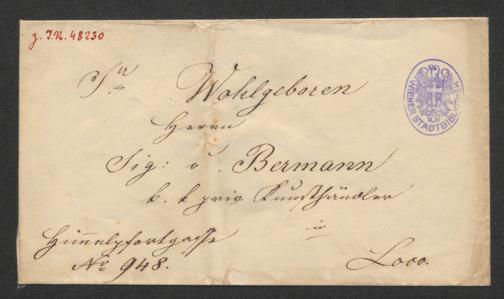 z. I.N. 48230
Sr
Wohlgeboren
WIENER STADTBIBLIOTHEK
Herrn
Sig: v. Bermann
k. k. priv Kunsthändler
in
Himmelpfortgasse
No 948.
Loco.